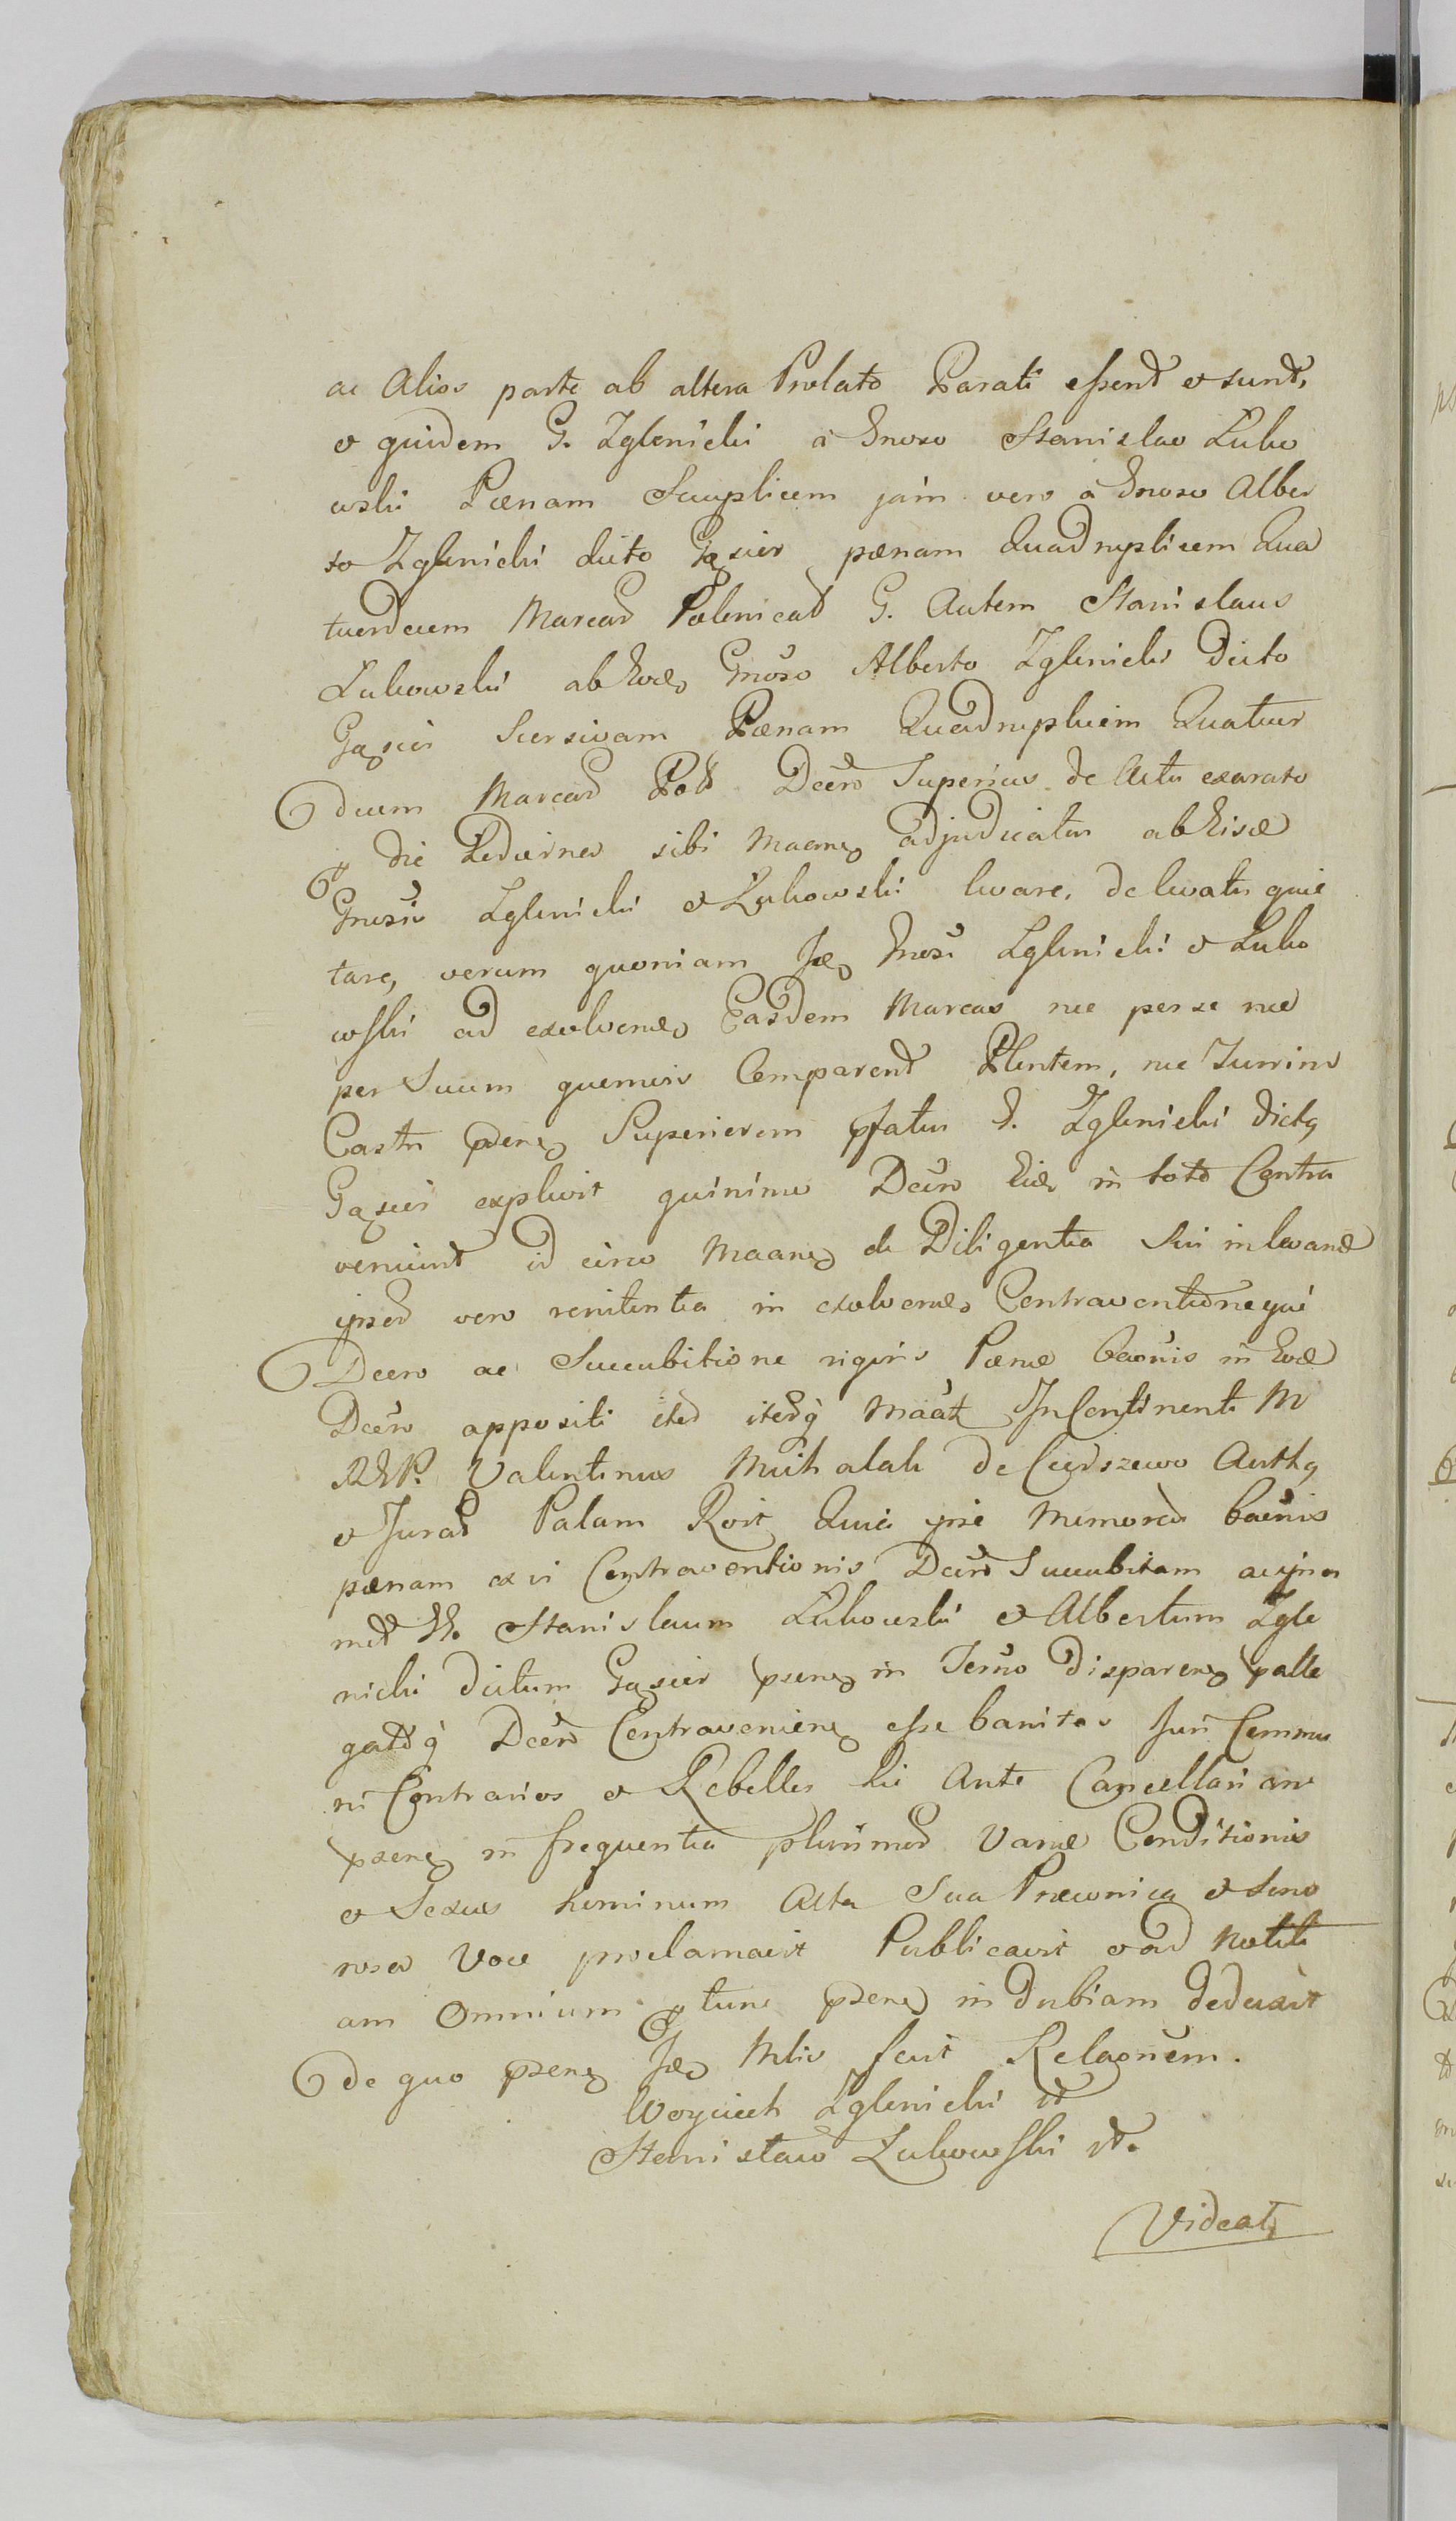 ac Alios parte ab altera Prolato Parati essent et sunt,
et quidem G. Zglenicki à Gnoso Stanislao Luko
wski Pœnam Simplicem jam vero à Gnoso Alber
to Zglenicki dicto Gąsior pœnam Quadruplicem Qua
tuordecem Marcas Polonicas G. Autem Stanislaus
Lukowski ab Eod Gnoso Alberto Zglenicki Dicto
Gąsior Pœnam Quadruplicem Quatuor
decem Marcas Pol Decro Superius de Actu exarato
die hodierna sibi adjudicatur ab Eisd
Gnosis Zglenicki et Lukowski levare, de levatis quie
tare, verum quoniam Gnosi Zglenicki et Luko
wski ad exolvend Easdem Marcas nec per se nec
per Suum quemvis Comparent Plentem, nec Turrim
Castri Superiorem pfatus G. Zglenicki dictq
Gąsior explevit quinimo Decro Eid in toto Contra
veniunt id circo de Diligentia Sui in levand
ipsor vero renitentia in exolvend Contraventioneque
Decro ac Succubitione rigoris Pœnæ baonis in Eod
Decro appositi Incontinenti M
REP. Valentinus Michalak de Cierszewo Autthq
et Jurat Palam Rcit Quia ipse Memorat baonis
pœnam ex vi Contraventionis Decro Succubitam
met GG. Stanislaum Lukowski et Albertum Zgle
nicki dictum Gąsior psenq in Terno disparenq palle
gatoq Decro Contravenienq esse banitos Juri Commu
ni Contrarios et Rebelles hic Ante Cancellariam
psenq in frequentia plurimor Variæ Conditionis
et Sexus hominum Alta Sua Præconica et Sono
rosa Voce proclamavit Publicavit et ad Notiti
am Omnium tunc psenq indubiam deduxit
de quo psenq Mlis fecit Relaonem.
Woyciech Zglenicki
Stanisław Lukowski
Videat